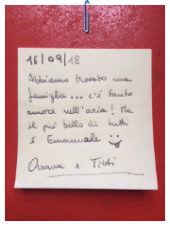 16/09/18
Abbiamo trovato una
famiglia... c'è tanto
amore nell'aria! Ma
il più bello di tutti
è Emanuele
e Titti